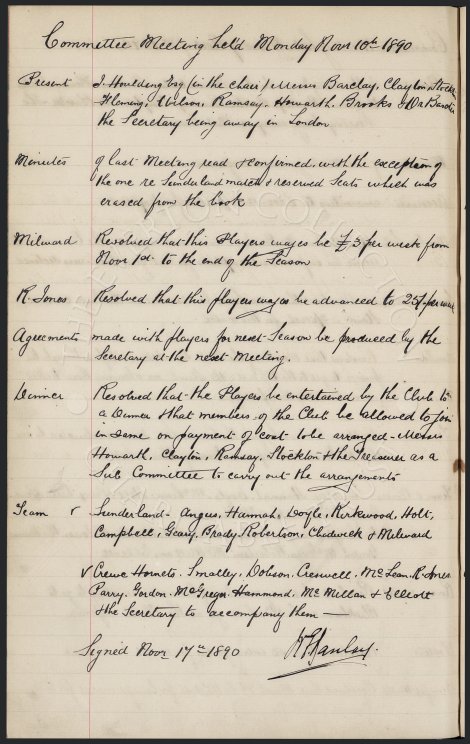 Committee Meeting held Monday Novr 10th 1890
Present J. Houlding Esq (in the chair) Messrs Barclay, Clayton, Stockton
Fleming, Wilson, Ramsay, Howarth, Brooks & Dr Baxter
the Secretary being away in London
Minutes of last Meeting read & confirmed with the exception of
the one re Sunderland match & reserved Seats which was
erased from the book
Milward Resolved that this Players wages be £3 per week from
Novr 1st to the end of the Season
R. Jones Resolved that this players wages be advanced to 25/- per week
Agreements made with players for next Season be produced by the
Secretary at the next Meeting.
Dinner Resolved that the Players be entertained by the Club to
a Dinner & that members of the Club be allowed to join
in same on payment of cost to be arranged - Messrs
Howarth, Clayton, Ramsay, Stockton & the Treasurer as a
Sub Committee to carry out the arrangements
Team ✓ Sunderland - Angus, Hannah, Doyle, Kirkwood, Holt,
Campbell, Geary, Brady, Robertson, Chadwick & Milward
✓ Crewe Hornets. Smalley, Dobson, Cresswell, McLean, R. Jones
Parry. Gordon. McGregor. Hammond. McMillan & Elliott
& the Secretary to accompany them —
Signed Novr 17th 1890